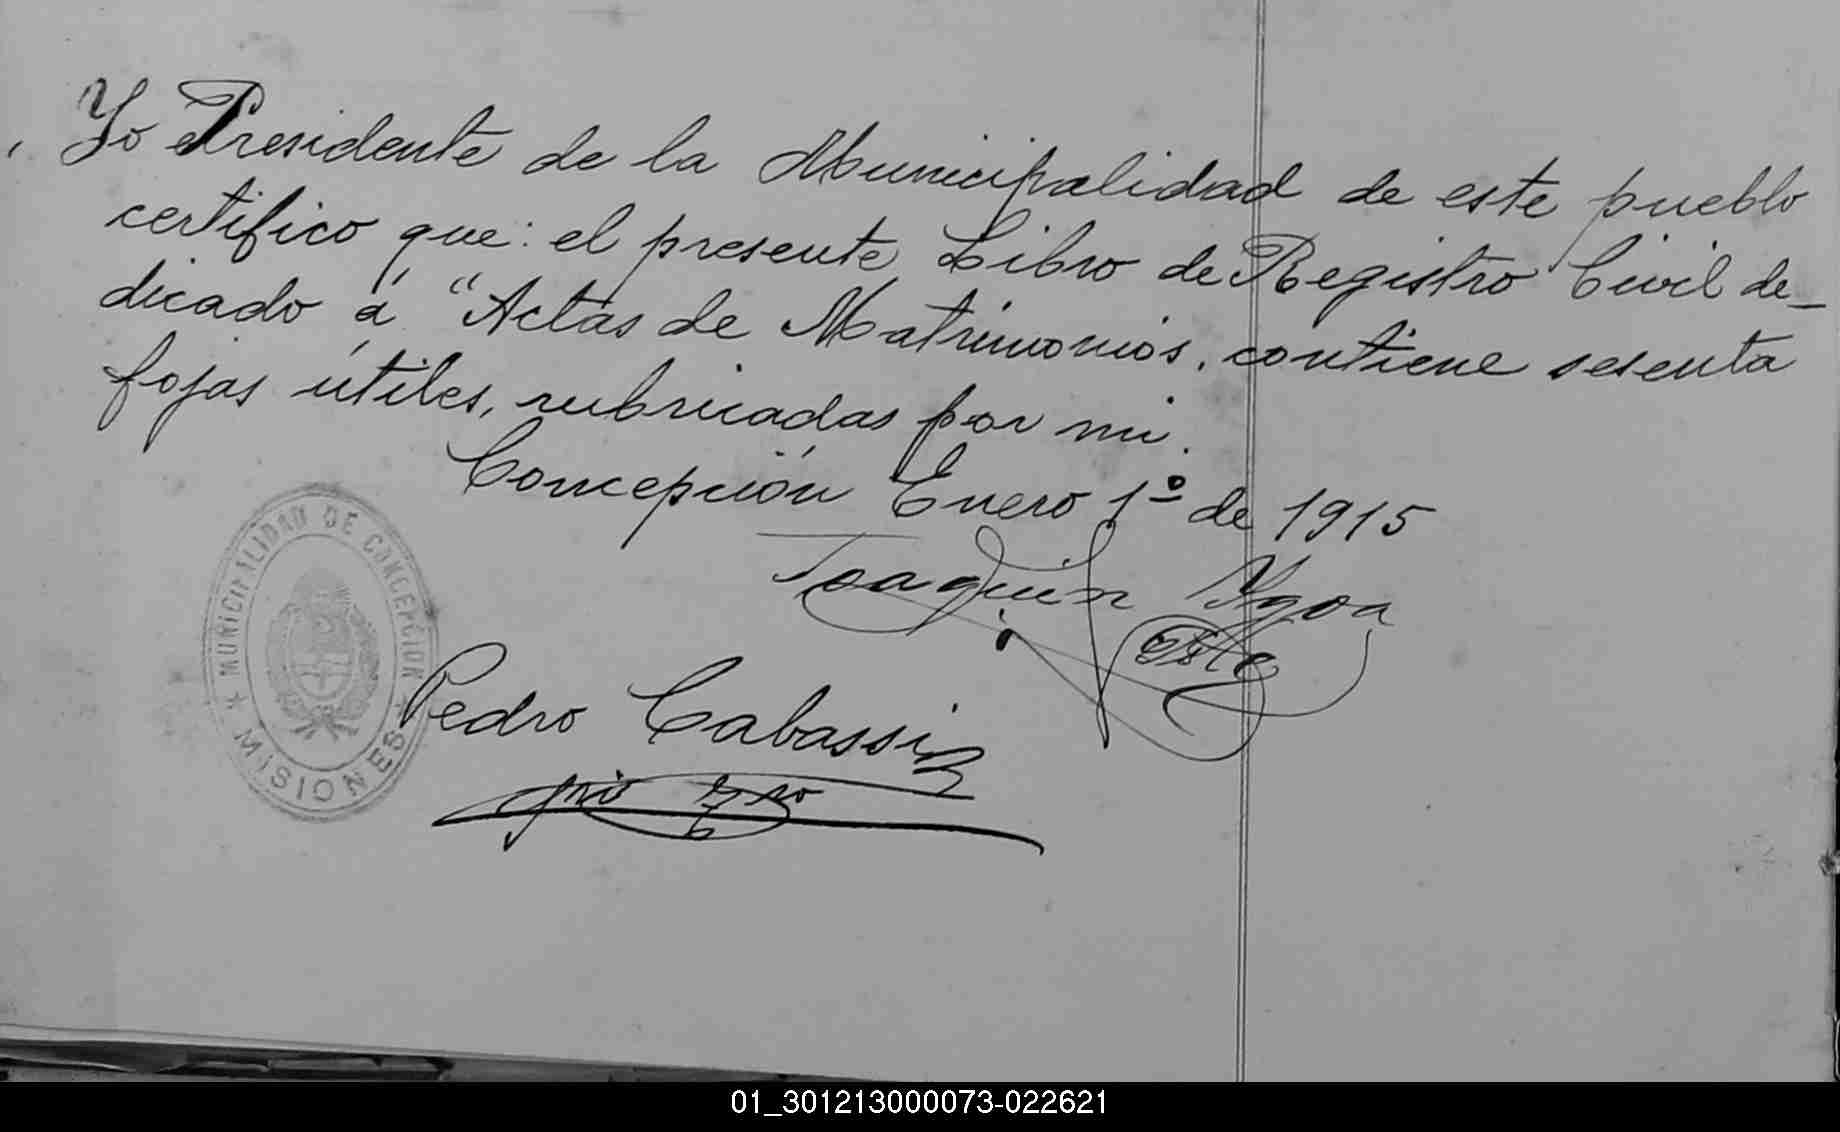 Yo Presidente de la Municipalidad de este pueblo
certifico que: el presente Libro de Registro Civil de_
dicado á "Actas de Matrimonios, contiene sesenta
fojas útiles, rubricadas por mi.
Concepción Enero 1º de 1915
Joaquin
Pedro Cabassi
MUNICIPALIDAD DE CONCEPCION
* MISIONES *
01_301213000073-022621